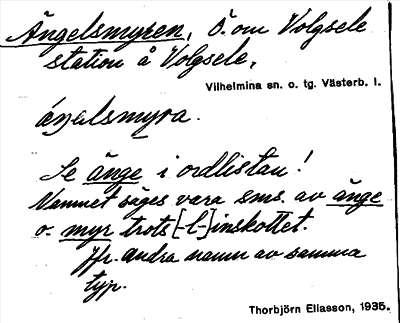 Ängelsmyren, Ö. om Volgsele
station å Volgsele,
Vilhelmina sn. o. tg. Västerb. l.
áŋelsmyra.
Se änge i ordlistan!
Namnet säges vara sms. av änge
o. myr trots [-l-]inskottet.
Jfr. andra namn av samma
typ.
Thorbjörn Eliasson, 1935.